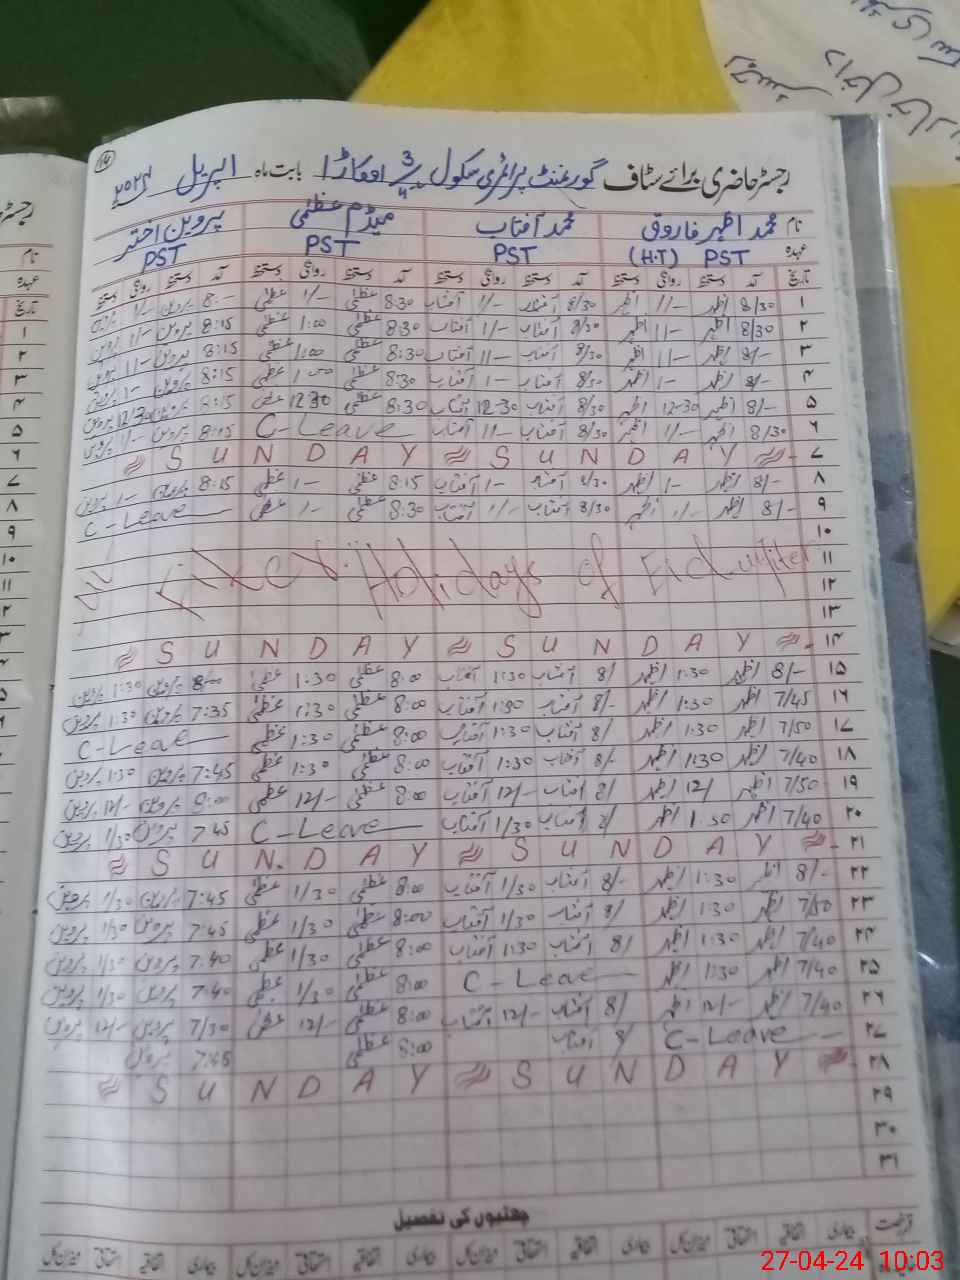 ۱۴
رجسٹر حاضری برائے سٹاف گورنمنٹ پرائمری سکول 3/4 اوکاڑا بابت ماہ اپریل ۲۰۲۴
نام محمد اظہر فاروق محمد آفتاب میڈم عظمٰی پروین اختر
عہدہ PST (H.T) PST PST PST
تاریخ آمد دستخط روانگی دستخط آمد دستخط روانگی دستخط آمد دستخط روانگی دستخط آمد دستخط روانگی دستخط
۱ 8/30 اظہر 1/- اظہر 8/30 آفتاب 1/- آفتاب 8:30 عظمٰی 1/- عظمٰی 8:- پروین 1/- پروین
۲ 8/30 اظہر 11- اظہر 8/30 آفتاب 1/- آفتاب 8:30 عظمٰی 1:00 عظمٰی 8:15 پروین 1/- پروین
۳ 8/- اظہر 11- اظہر 8/30 آفتاب 11- آفتاب 8:30 عظمٰی 1:00 عظمٰی 8:15 پروین 11- پروین
۴ 8/- اظہر 1- اظہر 8/30 آفتاب 1- آفتاب 8:30 عظمٰی 1:00 عظمٰی 8:15 پروین 1- پروین
۵ 8/- اظہر 12-30 اظہر 8/30 آفتاب 12-30 آفتاب 8:30 عظمٰی 12:30 عظمٰی 8:15 پروین 12:30 پروین
۶ 8/30 اظہر 1/- اظہر 8/30 آفتاب 11- آفتاب C-Leave 8:15 پروین 1/- پروین
۷ SUNDAY SUNDAY
۸ 8/- اظہر 1- اظہر 8/30 آفتاب 1- آفتاب 8:15 عظمٰی 1- عظمٰی 8:15 پروین 1- پروین
۹ 8/- اظہر 1/- اظہر 8/30 آفتاب 1/- آفتاب 8:30 عظمٰی 1- عظمٰی C-Leave
۱۰
۱۱ Holidays of Eid-ul-fiter
۱۲
۱۳
۱۴ SUNDAY SUNDAY
۱۵ 8/- اظہر 1:30 اظہر 8/ آفتاب 1:30 آفتاب 8:00 عظمٰی 1:30 عظمٰی 8:00 پروین 1:30 پروین
۱۶ 7/45 اظہر 1:30 اظہر 8/- آفتاب 1:30 آفتاب 8:00 عظمٰی 1:30 عظمٰی 7:35 پروین 1:30 پروین
۱۷ 7/50 اظہر 1:30 اظہر 8/ آفتاب 1:30 آفتاب 8:00 عظمٰی 1:30 عظمٰی C-Leave
۱۸ 7/40 اظہر 1:30 اظہر 8/- آفتاب 1:30 آفتاب 8:00 عظمٰی 1:30 عظمٰی 7:45 پروین 1:30 پروین
۱۹ 7/50 اظہر 12/ اظہر 8/ آفتاب 12/- آفتاب 8:00 عظمٰی 12/- عظمٰی 8:00 پروین 12/- پروین
۲۰ 7/40 اظہر 1:30 اظہر 8/ آفتاب 1/30 آفتاب C-Leave 7:45 پروین 1/30 پروین
۲۱ SUNDAY SUNDAY
۲۲ 8/- اظہر 1:30 اظہر 8/- آفتاب 1/30 آفتاب 8:00 عظمٰی 1/30 عظمٰی 7:45 پروین 1/30 پروین
۲۳ 7/50 اظہر 1:30 اظہر 8/ آفتاب 1/30 آفتاب 8:00 عظمٰی 1/30 عظمٰی 7:45 پروین 1/30 پروین
۲۴ 7/40 اظہر 1:30 اظہر 8/ آفتاب 1:30 آفتاب 8:00 عظمٰی 1/30 عظمٰی 7:40 پروین 1/30 پروین
۲۵ 7/40 اظہر 1:30 اظہر C-Leave 8:00 عظمٰی 1/30 عظمٰی 7:40 پروین 1/30 پروین
۲۶ 7/40 اظہر 12/- اظہر 8/ آفتاب 12/- آفتاب 8:00 عظمٰی 12/- عظمٰی 7/30 پروین 12/- پروین
۲۷ C-Leave 8/ آفتاب 8:00 عظمٰی 7:45 پروین
۲۸ SUNDAY SUNDAY
۲۹
۳۰
۳۱
چھٹیوں کی تفصیل
27-04-24 10:03